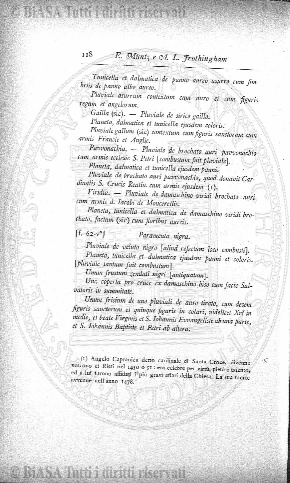 © BIASA Tutti i diritti riservati
118 E. Müntz e A. L. Frothingham
Tunicella et dalmatica de panno aureo azurro cum fim
briis de panno albo aureo.
Pluviale azurrum contextum cum auro et cum figuris
regum et angelorum.
Gailla (sic). — Pluviale de sirico gailla.
Planeta, dalmatica et tunicella ejusdem coloris.
Pluviale gallum (sic) contextum cum figuris sanctorum cum
armis Francie et Anglie.
Pavonachia. — Pluviale de brochato auri pavonachio
cum armis ecclesie S. Petri [combustum fuit pluviale].
Planeta, dalmatica et tunicella ejusdem panni.
Pluviale de brochato auri pavonachio, quod donavit Car
dinalis S. Crucis Reatin cum armis ejusdem (1).
Viridia. — Pluviale de damaschino viridi brochato auri
cum armis d. Jacobi de Moncerellis.
Planeta, tunicella et dalmatica de damaschino viridi bro-
chato, factum (sic) cum floribus auri.
[f. 62 v°] Paramenta nigra.
Pluviale de veluto nigro [aliud refectum loco combusti].
Planeta, tunicella et dalmatica ejusdem panni et coloris.
[Pluviale tantum fuit combustum].
Unus frustum zendali nigri [antiquatum].
Una coperta pro cruce ex damaschino biso cum facie Sal-
vatoris in summitate.
Unum frisium de uno pluviali de auro tirato, cum decem
figuris sanctorum et quinque figuris in colari, videlicet Xpi in
medio, et beate Virginis et S. Johannis Evangeliste ab una parte,
et S. Johannis Baptiste et Petri ab altera.
(1) Angelo Capranica detto cardinale di Santa Croce,
vescovo di Rieti nel celebre per virtù, pietà e talento,
ed a lui furono affidati i più gravi affari della Chiesa. La sua morte
avvenne nell'anno 1478.
© BIASA Tutti i diritti riservati